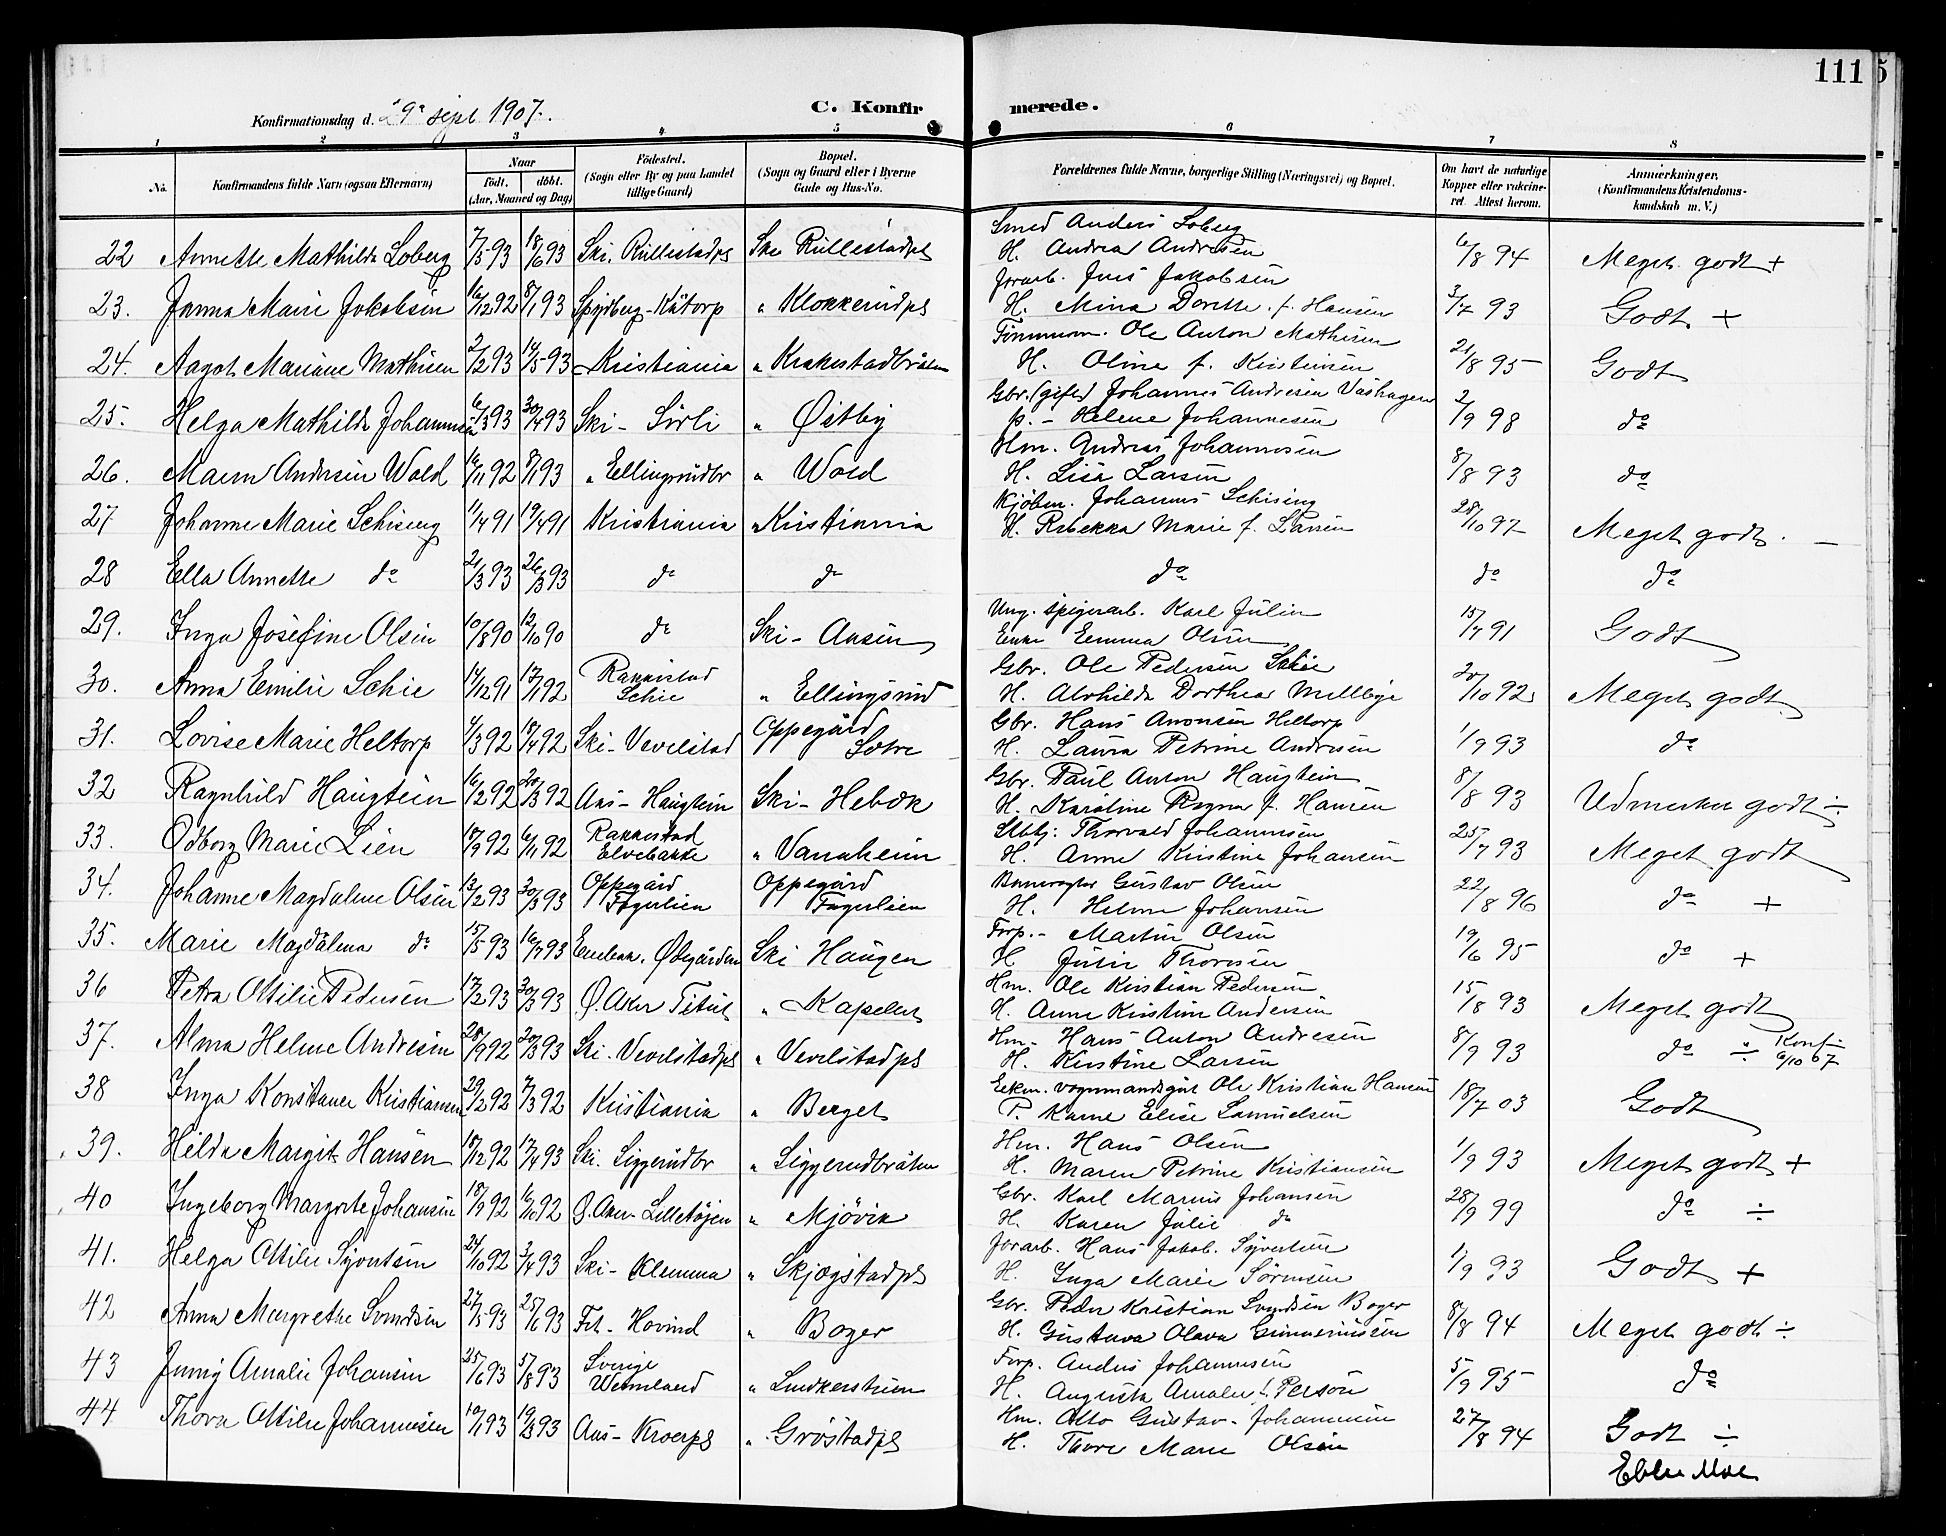 111
C. Konfirmerede.
Konfirmationsdag d. 29 sept 1907.
1 2 3 4 5 6 7 8
No.
Konfirmandens fulde Navn (ogsaa Efternavn)
Naar
født. døbt.
(Aar, Maaned og Dag)
Fødested.
(Sogn eller By og paa Landet
tillige Gaard)
Bopæl.
(Sogn og Gaard eller i Byerne
Gade og Hus-No.
Forældrenes fulde Navne, borgerlige Stilling (Næringsvei) og Bopæl.
Om havt de naturlige
Kopper eller vakcine-
ret. Attest herom.
Anmærkninger.
(Konfirmandens Kristendoms-
kundskab m. V.)
Smed Anders Loberg
22 Annette Mathilde Loberg 7/5 93 18/6 93 Ski. Rullestadpl Ski Rullestadpl H. Andrea Andresen 6/8 94 Meget godt +
Jorarb. Jens Jakobsen
23. Janna Marie Jakobsen 16/12 92 8/1 93 Spydberg-Kåtorp " Klokkerudpl H. Mina Dorthe f. Hansen 3/7 93 Godt +
Tømmerm. Ole Anton Mathisen
24. Aagot Mariane Mathisen 2/2 93 14/5 93 Kristiania " Krakstadbråten H. Oline f. Kristensen 21/8 95 Godt
Gbr. (gift) Johannes Andresen Vashagen
25. Helga Mathilde Johannesen 6/3 93 30/4 93 Ski - Sørli " Østby p. - Helene Johannesen 2/9 98 do
Hm. Andreas Johannesen
26. Maren Andersen Wold 16/11 92 8/1 93 " Ellingsrudbr " Wold H. Lisa Larsen 8/8 93 do
Kjøbm. Johannes Schiseng
27 Johanne Marie Schiseng 11/4 91 19/4 91 Kristiania " Kristiania H. Rebekka Marie f. Larsen 28/10 97 Meget godt. –
28 Ella Annette do 21/3 93 26/3 93 do do do do do
Ung. spigerarb. Karl Julin
29. Inga Josefine Olsen 10/8 90 12/10 90 do Ski - Aasen Enke Emma Olsen 15/7 91 Godt
Rakkestad Gbr. Ole Pedersen Schie
30. Anna Emilie Schie 14/12 91 17/1 92 Schie " Ellingsrud H. Alvhilde Dorthea Mellbye 20/10 92 Meget godt.
Oppegård Gbr. Hans Anonsen Heltorp
31. Lovise Marie Heltorp 4/3 92 18/4 92 Ski - Vevelstad Sætre H. Laura Petrine Andresen 1/9 93 do
Gbr. Paul Anton Haugtein
32 Ragnhild Haugtein 16/2 92 20/3 92 Aas - Haugtein Ski - Hebæk H. Karoline Ragna f. Hansen 8/8 93 Udmerket godt ÷
Rakkestad Thorvald Johannesen
33. Odborg Marie Lien 18/9 92 6/11 92 Elvebakke " Vanaheim H. Anne Kristine Johansen 25/7 93 Meget godt
Oppegård Oppegård Banevogter Gustav Olsen
34. Johanne Magdalene Olsen 13/2 93 30/3 93 Fagerlien Fagerlien H. Helene Johansen 22/8 96 do +
Forp. - Martin Olsen
35. Marie Magdalena do 15/5 93 16/7 93 Enebak. Ødegården Ski Haugen H Julie Thoresen 19/6 95 do +
Hm. Ole Kristian Pedersen
36 Petra Otilie Pedersen 17/2 93 30/3 93 Ø. Aker " Kapellet H. Anne Kristine Andersen 15/8 93 Meget godt
Hm. Hans Anton Andresen
37. Alma Helene Andresen 28/9 92 30/3 93 Ski. Vevelstadpl " Vevelstadpl H. Kirstine Larsen 8/9 93 do ÷ Konf. 6/10 07
vognmandsgut Ole Kristian Hansen
38 Inga Konstance Kristiansen 29/2 92 7/3 92 Kristiania " Berget P. Karne Elise Samuelsen 18/7 03 Godt
Hm. Hans Olsen
39. Hilda Margit Hansen 18/12 92 17/4 93 Ski. Siggerudbr " Siggerudbråten H. Maren Petrine Kristiansen 1/9 93 Meget godt +
Gbr. Karl Marius Johansen
40 Ingeborg Margrete Johansen 18/9 92 16/10 92 Ø. Aker - Lilletøjen " Mjövik H. Karen Julie do 28/9 99 do ÷
Jorarb. Hans Jakob. Syvertsen
41. Helga Otilie 24/10 92 3/4 93 Ski - Klemma " Skjøgstadpl H. Inga Marie Sörensen 1/9 93 Godt +
Gbr. Peder Kristian Svendsen Boger
42 Anna Margrethe Svendsen 27/5 93 25/6 93 Fet - Hovind " Boger H. Gustava Olava Gunnerussen 8/8 94 Meget godt ÷
Sverige Forp. Anders Johannesen
43 Jenny Amalie Johansen 25/6 93 5/8 93 Wermland " H. Augusta Amalie f. Person 5/9 95 do
Hm. Otto Gustav Johannesen
44 Thora Otilie Johannesen 10/1 93 19/3 93 Aas - Kroerpl " Gröstadpl H. Thora Marie Olsen 27/8 94 Godt ÷